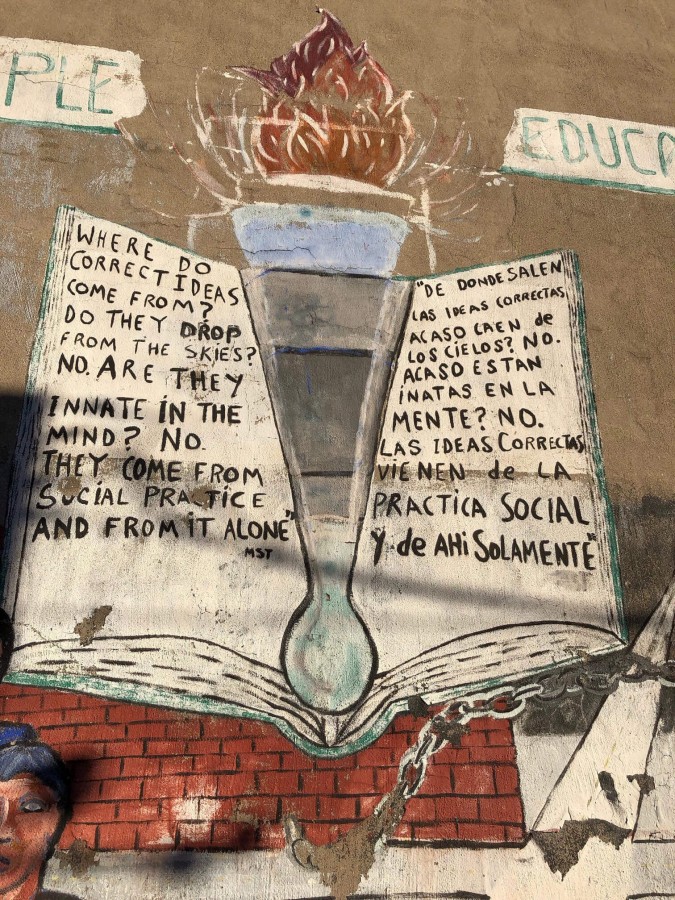 PLE
EDUCA
WHERE DO
CORRECT IDEAS
COME FROM?
DO THEY DROP
FROM THE SKIES?
NO. ARE THEY
INNATE IN THE
MIND? NO.
THEY COME FROM
SOCIAL PRACTICE
AND FROM IT ALONE"
MST
"DE DONDE SALEN
LAS IDEAS CORRECTAS
ACASO CAEN de
LOS CIELOS? NO.
ACASO ESTAN
INATAS EN LA
MENTE? NO.
LAS IDEAS CORRECTAS
VIENEN de LA
PRACTICA SOCIAL
Y de AHI SOLAMENTE"